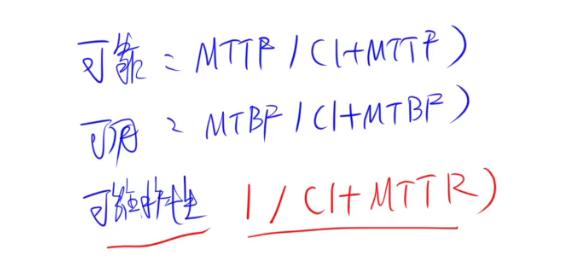 可靠 = MTTF / (1+MTTF)
可用 = MTBF / (1+MTBF)
可维护性 1 / (1+MTTR)